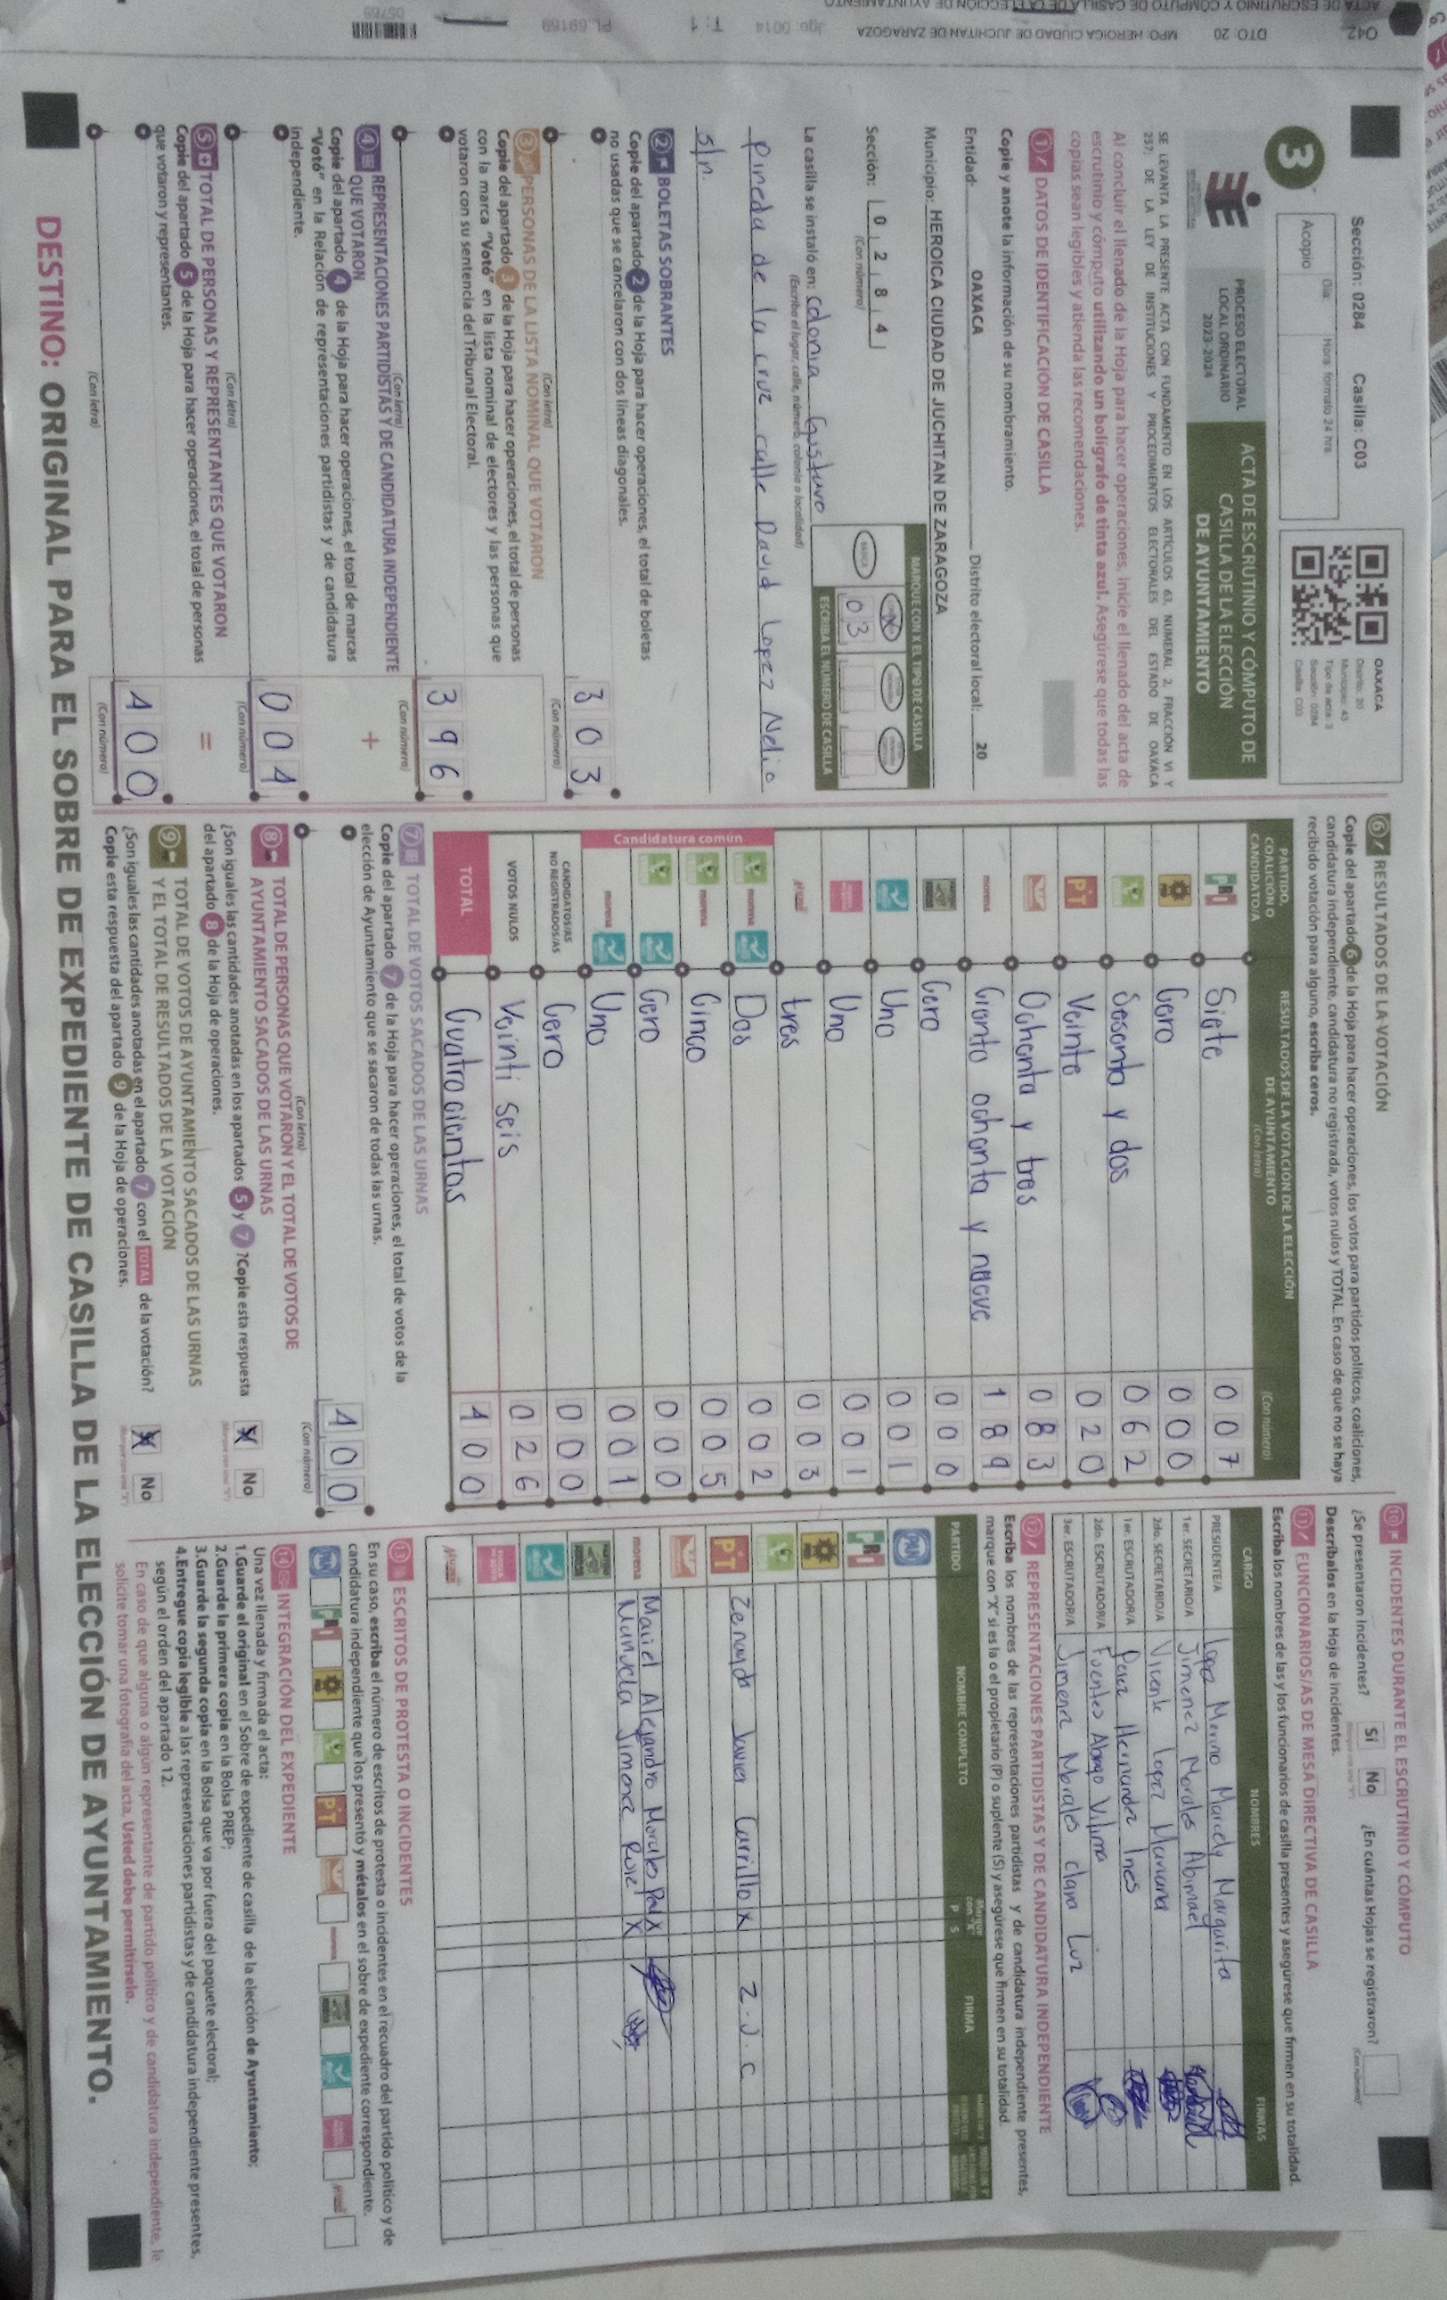 Sección: 0284 Casilla: C03
3
Acopio
Día:
Hora: formato 24 hrs
OAXACA
Distrito: 20
Municipio: 43
Tipo de acta: 3
Sección: 0284
Casilla: C03
PROCESO ELECTORAL
LOCAL ORDINARIO
2023-2024
ACTA DE ESCRUTINIO Y CÓMPUTO DE
CASILLA DE LA ELECCIÓN
DE AYUNTAMIENTO
SE LEVANTA LA PRESENTE ACTA CON FUNDAMENTO EN LOS ARTÍCULOS 63, NUMERAL 2, FRACCIÓN VI Y
257; DE LA LEY DE INSTITUCIONES Y PROCEDIMIENTOS ELECTORALES DEL ESTADO DE OAXACA
Al concluir el llenado de la Hoja para hacer operaciones, inicie el llenado del acta de
escrutinio y cómputo utilizando un bolígrafo de tinta azul. Asegúrese que todas las
copias sean legibles y atienda las recomendaciones.
1 DATOS DE IDENTIFICACIÓN DE CASILLA
Copie y anote la información de su nombramiento.
Entidad: OAXACA Distrito electoral local: 20
Municipio: HEROICA CIUDAD DE JUCHITAN DE ZARAGOZA
Sección: 0 2 8 4
(Con número)
MARQUE CON X EL TIPO DE CASILLA
BÁSICA
X
0 3
ESCRIBA EL NÚMERO DE CASILLA
La casilla se instaló en: Colonia Gustavo
(Escriba el lugar, calle, número, colonia o localidad)
Pineda de la cruz calle David Lopez Nelio
s/n.
2 BOLETAS SOBRANTES
Copie del apartado 2 de la Hoja para hacer operaciones, el total de boletas
no usadas que se cancelaron con dos líneas diagonales.
303
(Con letra)
(Con número)
3 PERSONAS DE LA LISTA NOMINAL QUE VOTARON
Copie del apartado 3 de la Hoja para hacer operaciones, el total de personas
con la marca "Votó" en la lista nominal de electores y las personas que
votaron con su sentencia del Tribunal Electoral.
396
(Con letra)
(Con número)
4 REPRESENTACIONES PARTIDISTAS Y DE CANDIDATURA INDEPENDIENTE
QUE VOTARON
Copie del apartado 4 de la Hoja para hacer operaciones, el total de marcas
"Votó" en la Relación de representaciones partidistas y de candidatura
independiente.
+
004
(Con letra)
(Con número)
5 TOTAL DE PERSONAS Y REPRESENTANTES QUE VOTARON
Copie del apartado 5 de la Hoja para hacer operaciones, el total de personas
que votaron y representantes.
=
400
(Con letra)
(Con número)
6 RESULTADOS DE LA VOTACIÓN
Copie del apartado 6 de la Hoja para hacer operaciones, los votos para partidos políticos, coaliciones,
candidatura independiente, candidatura no registrada, votos nulos y TOTAL. En caso de que no se haya
recibido votación para alguno, escriba ceros.
PARTIDO,
COALICIÓN O
CANDIDATO/A
RESULTADOS DE LA VOTACIÓN DE LA ELECCIÓN
DE AYUNTAMIENTO
(Con letra)
(Con número)
PRI Siete 007
Cero 000
Sesenta y dos 062
PT Veinte 020
Ochenta y tres 083
morena Ciento ochenta y nueve 189
Cero 000
Uno 001
Uno 001
tres 003
Candidatura común
morena Dos 002
morena Cinco 005
Cero 000
morena Uno 001
CANDIDATOS/AS
NO REGISTRADOS/AS Cero 000
VOTOS NULOS Veinti seis 026
TOTAL Cuatrocientos 400
7 TOTAL DE VOTOS SACADOS DE LAS URNAS
Copie del apartado 7 de la Hoja para hacer operaciones, el total de votos de la
elección de Ayuntamiento que se sacaron de todas las urnas.
400
(Con letra)
(Con número)
8 TOTAL DE PERSONAS QUE VOTARON Y EL TOTAL DE VOTOS DE
AYUNTAMIENTO SACADOS DE LAS URNAS
¿Son iguales las cantidades anotadas en los apartados 5 y 7? Copie esta respuesta
del apartado 8 de la Hoja de operaciones.
X No
9 TOTAL DE VOTOS DE AYUNTAMIENTO SACADOS DE LAS URNAS
Y EL TOTAL DE RESULTADOS DE LA VOTACIÓN
¿Son iguales las cantidades anotadas en el apartado 7 con el TOTAL de la votación?
Copie esta respuesta del apartado 9 de la Hoja de operaciones.
X No
10 INCIDENTES DURANTE EL ESCRUTINIO Y CÓMPUTO
¿Se presentaron incidentes? Sí No ¿En cuántas Hojas se registraron?
(Con número)
Descríbalos en la Hoja de incidentes.
11 FUNCIONARIOS/AS DE MESA DIRECTIVA DE CASILLA
Escriba los nombres de las y los funcionarios de casilla presentes y asegúrese que firmen en su totalidad.
CARGO NOMBRES FIRMAS
PRESIDENTE/A Lopez Merino Marcely Margarita
1er. SECRETARIO/A Jimenez Morales Abimael
2do. SECRETARIO/A Vicente Lopez Mariana
1er. ESCRUTADOR/A Perez Hernandez Ines
2do. ESCRUTADOR/A Fuentes Abrego Vilma
3er. ESCRUTADOR/A Jimenez Morales Clara Luz
12 REPRESENTACIONES PARTIDISTAS Y DE CANDIDATURA INDEPENDIENTE
Escriba los nombres de las representaciones partidistas y de candidatura independiente presentes,
marque con "X" si es la o el propietario (P) o suplente (S) y asegúrese que firmen en su totalidad.
PARTIDO NOMBRE COMPLETO P S FIRMA
PAN
PRI
PT Zenayda Javier Carrillo X Z.J.C
morena Mariel Alejandro Morales X
Manuela Jimenez Ruiz X
13 ESCRITOS DE PROTESTA O INCIDENTES
En su caso, escriba el número de escritos de protesta o incidentes en el recuadro del partido político y de
candidatura independiente que los presentó y métalos en el sobre de expediente correspondiente.
14 INTEGRACIÓN DEL EXPEDIENTE
Una vez llenada y firmada el acta:
1.Guarde el original en el Sobre de expediente de casilla de la elección de Ayuntamiento;
2.Guarde la primera copia en la Bolsa PREP;
3.Guarde la segunda copia en la Bolsa que va por fuera del paquete electoral;
4.Entregue copia legible a las representaciones partidistas y de candidatura independiente presentes,
según el orden del apartado 12.
En caso de que alguna o algun representante de partido político y de candidatura independiente, le
solicite tomar una fotografía del acta, Usted debe permitírselo.
DESTINO: ORIGINAL PARA EL SOBRE DE EXPEDIENTE DE CASILLA DE LA ELECCIÓN DE AYUNTAMIENTO.
042 DTO: 20 MPO: HEROICA CIUDAD DE JUCHITAN DE ZARAGOZA T: 1